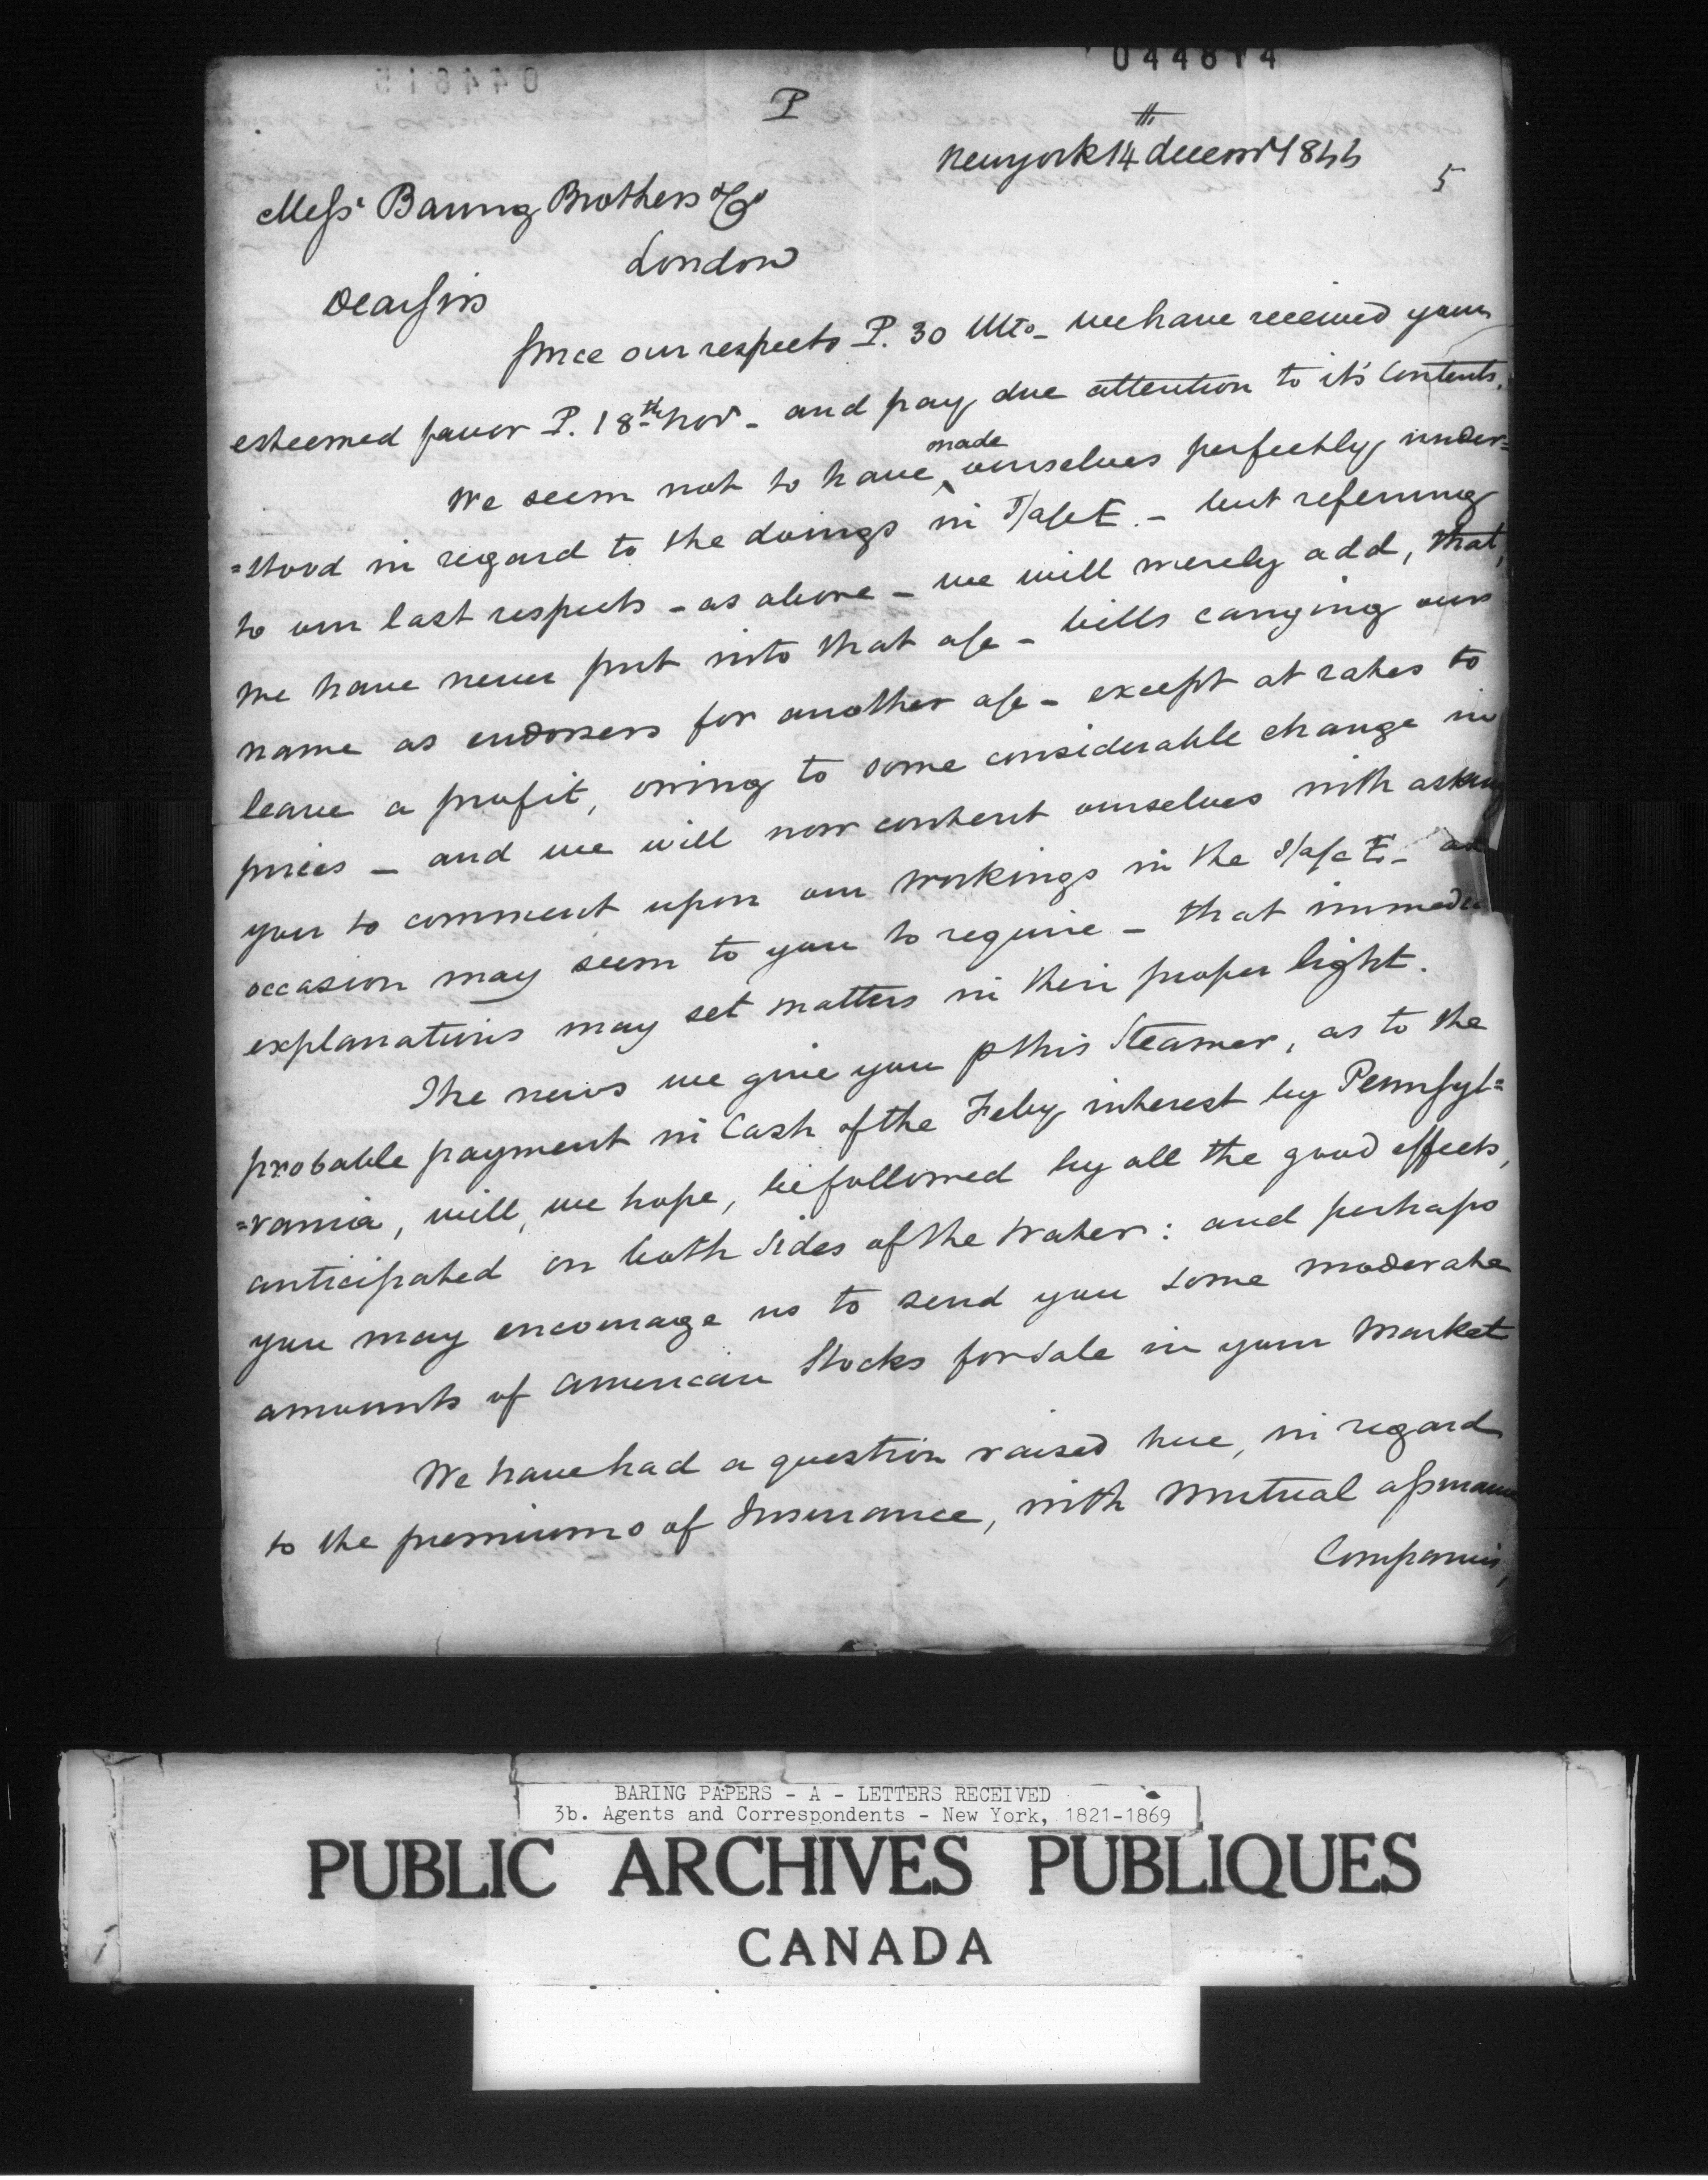 044814
P
New york 14th decemr 1844
5
Mess.rs Baring Brothers & Co
London
Dear Sirs
Since our respects P. 30 Ulto - we have received your
esteemed favor P. 18th Nov. - and pay due attention to it's Contents.
We seem not to have made ourselves perfectly under=
=stood in regard to the doings in - but referring
to our last respects - as above - we will merely add, that,
we have never put into that a/c - bills carrying our
name as endorsers for another a/c - except at rates to
leave a profit, owing to some considerable change in
prices - and we will now content ourselves with asking
you to comment upon our workings in the - as
occasion may seem to you to require - that immedi
explanations may set matters in their proper light.
The news we give you p this Steamer, as to the
probable payment in Cash of the Feby interest by Pennsyl=
=vania, will, we hope, be followed by all the good effects,
anticipated on both Sides of the Water: and perhaps
you may encourage us to send you some moderate
amounts of American Stocks for Sale in your Market
We have had a question raised here, in regard
to the premiums of Insurance, with Mutual assurance
Companies,
BARING PAPERS - A - LETTERS RECEIVED
3b. Agents and Correspondents - New York, 1821-1869
PUBLIC ARCHIVES PUBLIQUES
CANADA